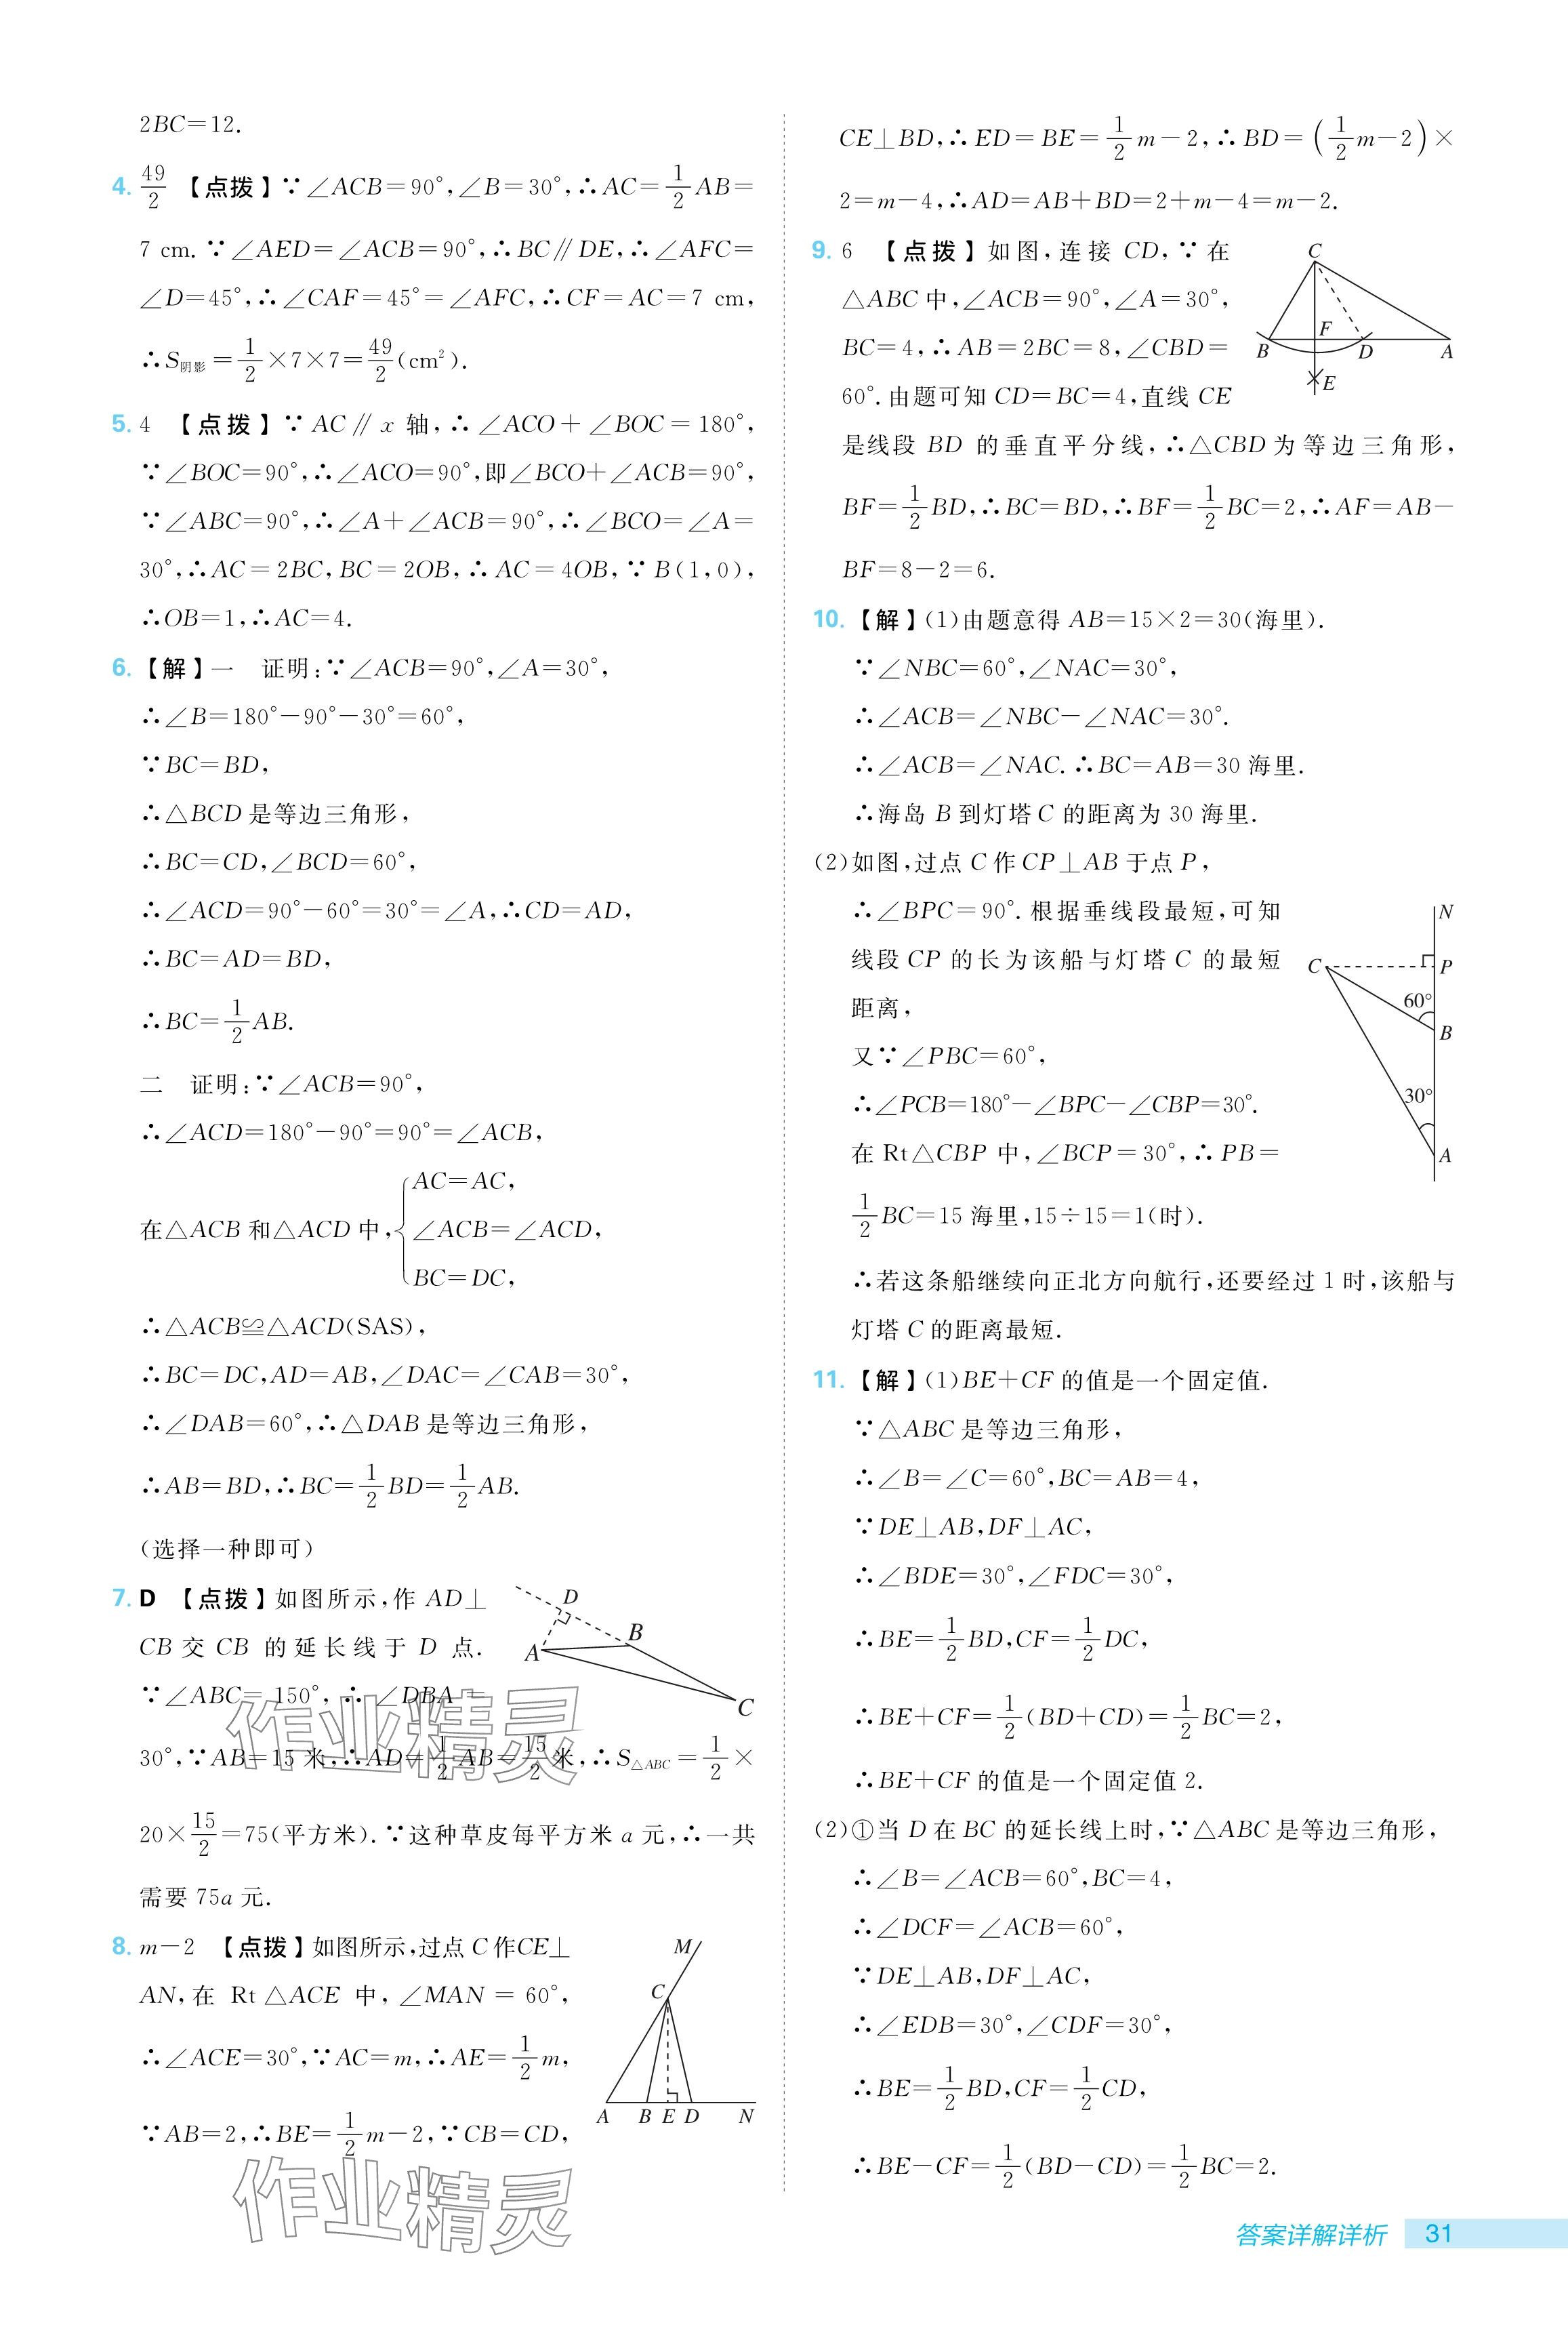 2BC=12.
4. 49/2 【点拨】∵∠ACB=90°,∠B=30°,∴AC=1/2AB=
7 cm. ∵∠AED=∠ACB=90°,∴BC∥DE,∴∠AFC=
∠D=45°,∴∠CAF=45°=∠AFC,∴CF=AC=7 cm,
∴S阴影=1/2×7×7=49/2(cm²).
5. 4 【点拨】∵AC∥x 轴,∴∠ACO+∠BOC=180°,
∵∠BOC=90°,∴∠ACO=90°,即∠BCO+∠ACB=90°,
∵∠ABC=90°,∴∠A+∠ACB=90°,∴∠BCO=∠A=
30°,∴AC=2BC,BC=2OB,∴AC=4OB,∵B(1,0),
∴OB=1,∴AC=4.
6.【解】一 证明:∵∠ACB=90°,∠A=30°,
∴∠B=180°-90°-30°=60°,
∵BC=BD,
∴△BCD是等边三角形,
∴BC=CD,∠BCD=60°,
∴∠ACD=90°-60°=30°=∠A,∴CD=AD,
∴BC=AD=BD,
∴BC=1/2AB.
二 证明:∵∠ACB=90°,
∴∠ACD=180°-90°=90°=∠ACB,
AC=AC,
在△ACB和△ACD中,{∠ACB=∠ACD,
BC=DC,
∴△ACB≌△ACD(SAS),
∴BC=DC,AD=AB,∠DAC=∠CAB=30°,
∴∠DAB=60°,∴△DAB是等边三角形,
∴AB=BD,∴BC=1/2BD=1/2AB.
(选择一种即可)
7. D 【点拨】如图所示,作 AD⊥
CB交 CB 的延长线于 D 点.
∵∠ABC=150°,∴∠DBA=
30°,∵AB=15 米,∴AD=1/2AB=15/2米,∴S△ABC=1/2×
20×15/2=75(平方米).∵这种草皮每平方米 a 元,∴一共
需要 75a 元.
D
B
A
C
8. m-2 【点拨】如图所示,过点C作CE⊥
AN,在 Rt△ACE 中,∠MAN=60°,
∴∠ACE=30°,∵AC=m,∴AE=1/2m,
∵AB=2,∴BE=1/2m-2,∵CB=CD,
M
C
A B E D N
CE⊥BD,∴ED=BE=1/2m-2,∴BD=(1/2m-2)×
2=m-4,∴AD=AB+BD=2+m-4=m-2.
9. 6 【点拨】如图,连接 CD,∵在
△ABC中,∠ACB=90°,∠A=30°,
BC=4,∴AB=2BC=8,∠CBD=
60°.由题可知CD=BC=4,直线 CE
是线段 BD 的垂直平分线,∴△CBD为等边三角形,
BF=1/2BD,∴BC=BD,∴BF=1/2BC=2,∴AF=AB-
BF=8-2=6.
C
F
B D A
E
10.【解】(1)由题意得 AB=15×2=30(海里).
∵∠NBC=60°,∠NAC=30°,
∴∠ACB=∠NBC-∠NAC=30°.
∴∠ACB=∠NAC.∴BC=AB=30 海里.
∴海岛 B 到灯塔C 的距离为 30 海里.
(2)如图,过点 C 作CP⊥AB 于点 P,
∴∠BPC=90°.根据垂线段最短,可知
线段 CP 的长为该船与灯塔 C 的最短
距离,
又∵∠PBC=60°,
∴∠PCB=180°-∠BPC-∠CBP=30°.
在 Rt△CBP 中,∠BCP=30°,∴PB=
1/2BC=15 海里,15÷15=1(时).
∴若这条船继续向正北方向航行,还要经过 1 时,该船与
灯塔 C 的距离最短.
N
C P
60°
B
30°
A
11.【解】(1)BE+CF 的值是一个固定值.
∵△ABC是等边三角形,
∴∠B=∠C=60°,BC=AB=4,
∵DE⊥AB,DF⊥AC,
∴∠BDE=30°,∠FDC=30°,
∴BE=1/2BD,CF=1/2DC,
∴BE+CF=1/2(BD+CD)=1/2BC=2,
∴BE+CF 的值是一个固定值 2.
(2)①当 D 在 BC 的延长线上时,∵△ABC是等边三角形,
∴∠B=∠ACB=60°,BC=4,
∴∠DCF=∠ACB=60°,
∵DE⊥AB,DF⊥AC,
∴∠EDB=30°,∠CDF=30°,
∴BE=1/2BD,CF=1/2CD,
∴BE-CF=1/2(BD-CD)=1/2BC=2.
作业精灵
作业精灵
答案详解详析 31